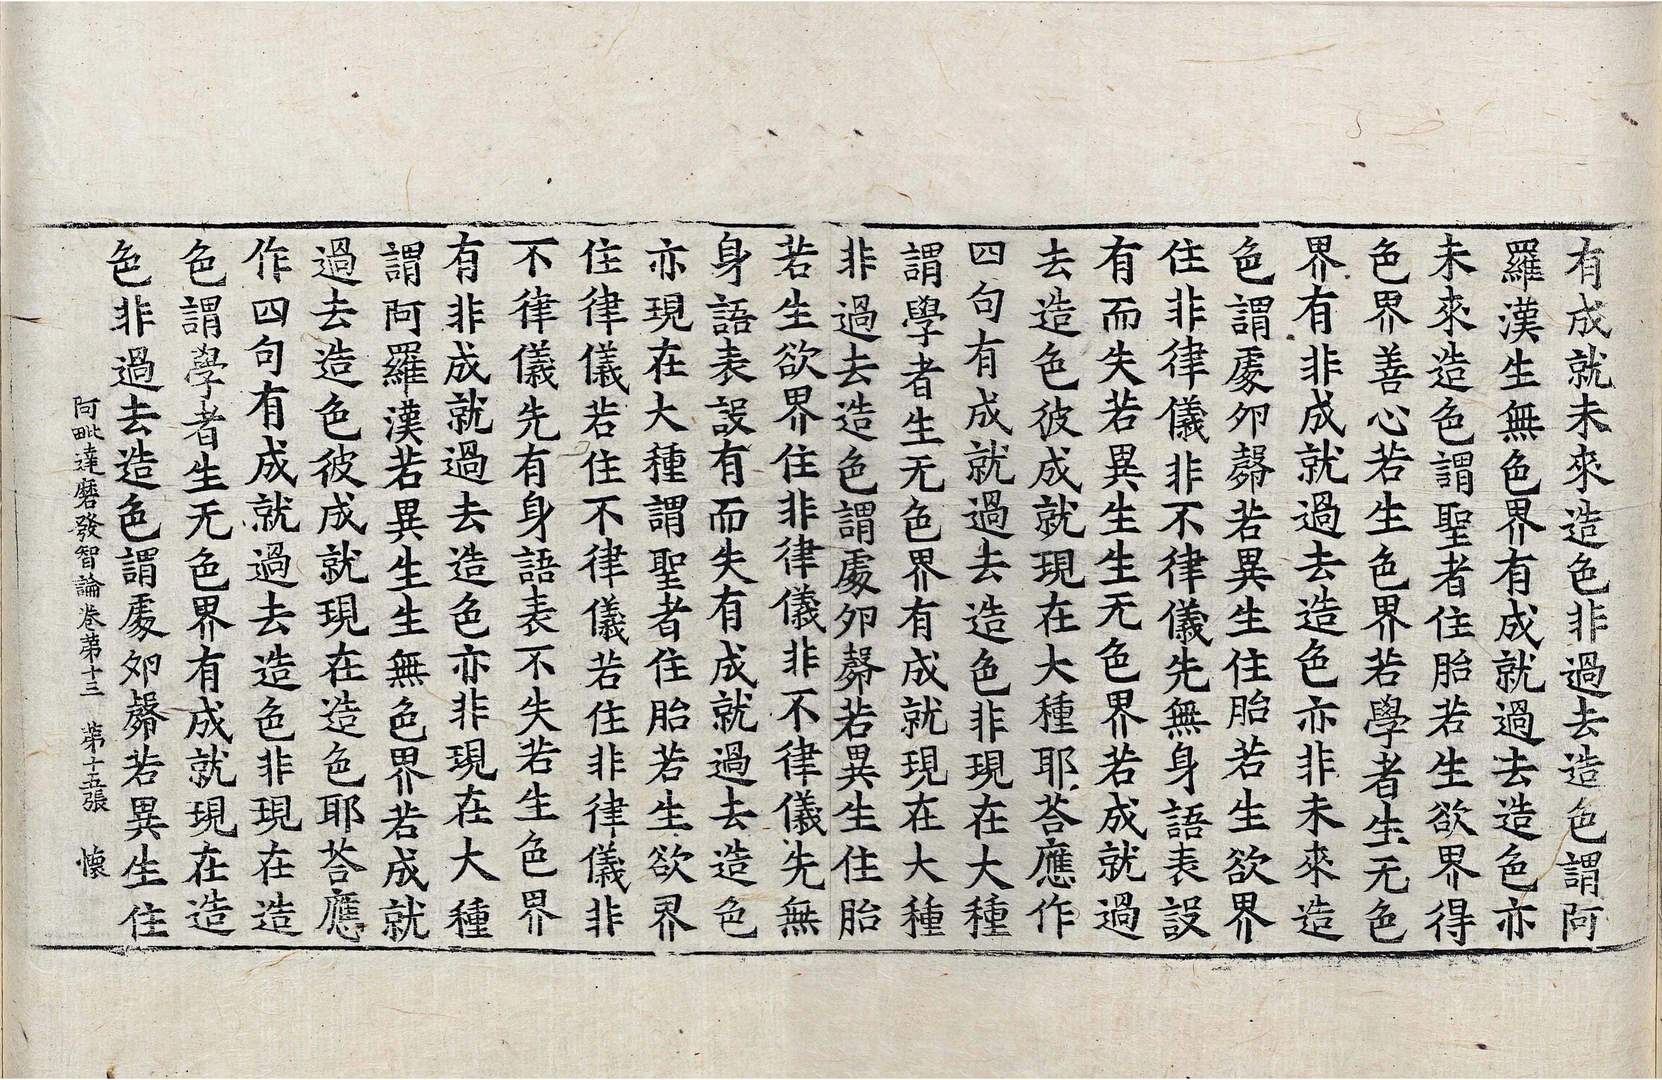 有成就未來造色非過去造色謂阿
羅漢生無色界有成就過去造色亦
未來造色謂聖者住胎若生欲界得
色界善心若生色界若學者生无色
界有非成就過去造色亦非未來造
色謂處卵㲉若異生住胎若生欲界
住非律儀非不律儀先無身語表設
有而失若異生生无色界若成就過
去造色彼成就現在大種耶荅應作
四句有成就過去造色非現在大種
謂學者生无色界有成就現在大種
非過去造色謂處卵㲉若異生住胎
若生欲界住非律儀非不律儀先無
身語表設有而失有成就過去造色
亦現在大種謂聖者住胎若生欲界
住律儀若住不律儀若住非律儀非
不律儀先有身語表不失若生色界
有非成就過去造色亦非現在大種
謂阿羅漢若異生生無色界若成就
過去造色彼成就現在造色耶荅應
作四句有成就過去造色非現在造
色謂學者生无色界有成就現在造
色非過去造色謂處卵㲉若異生住
阿毗達磨發智論卷第十三 第十五張 懷